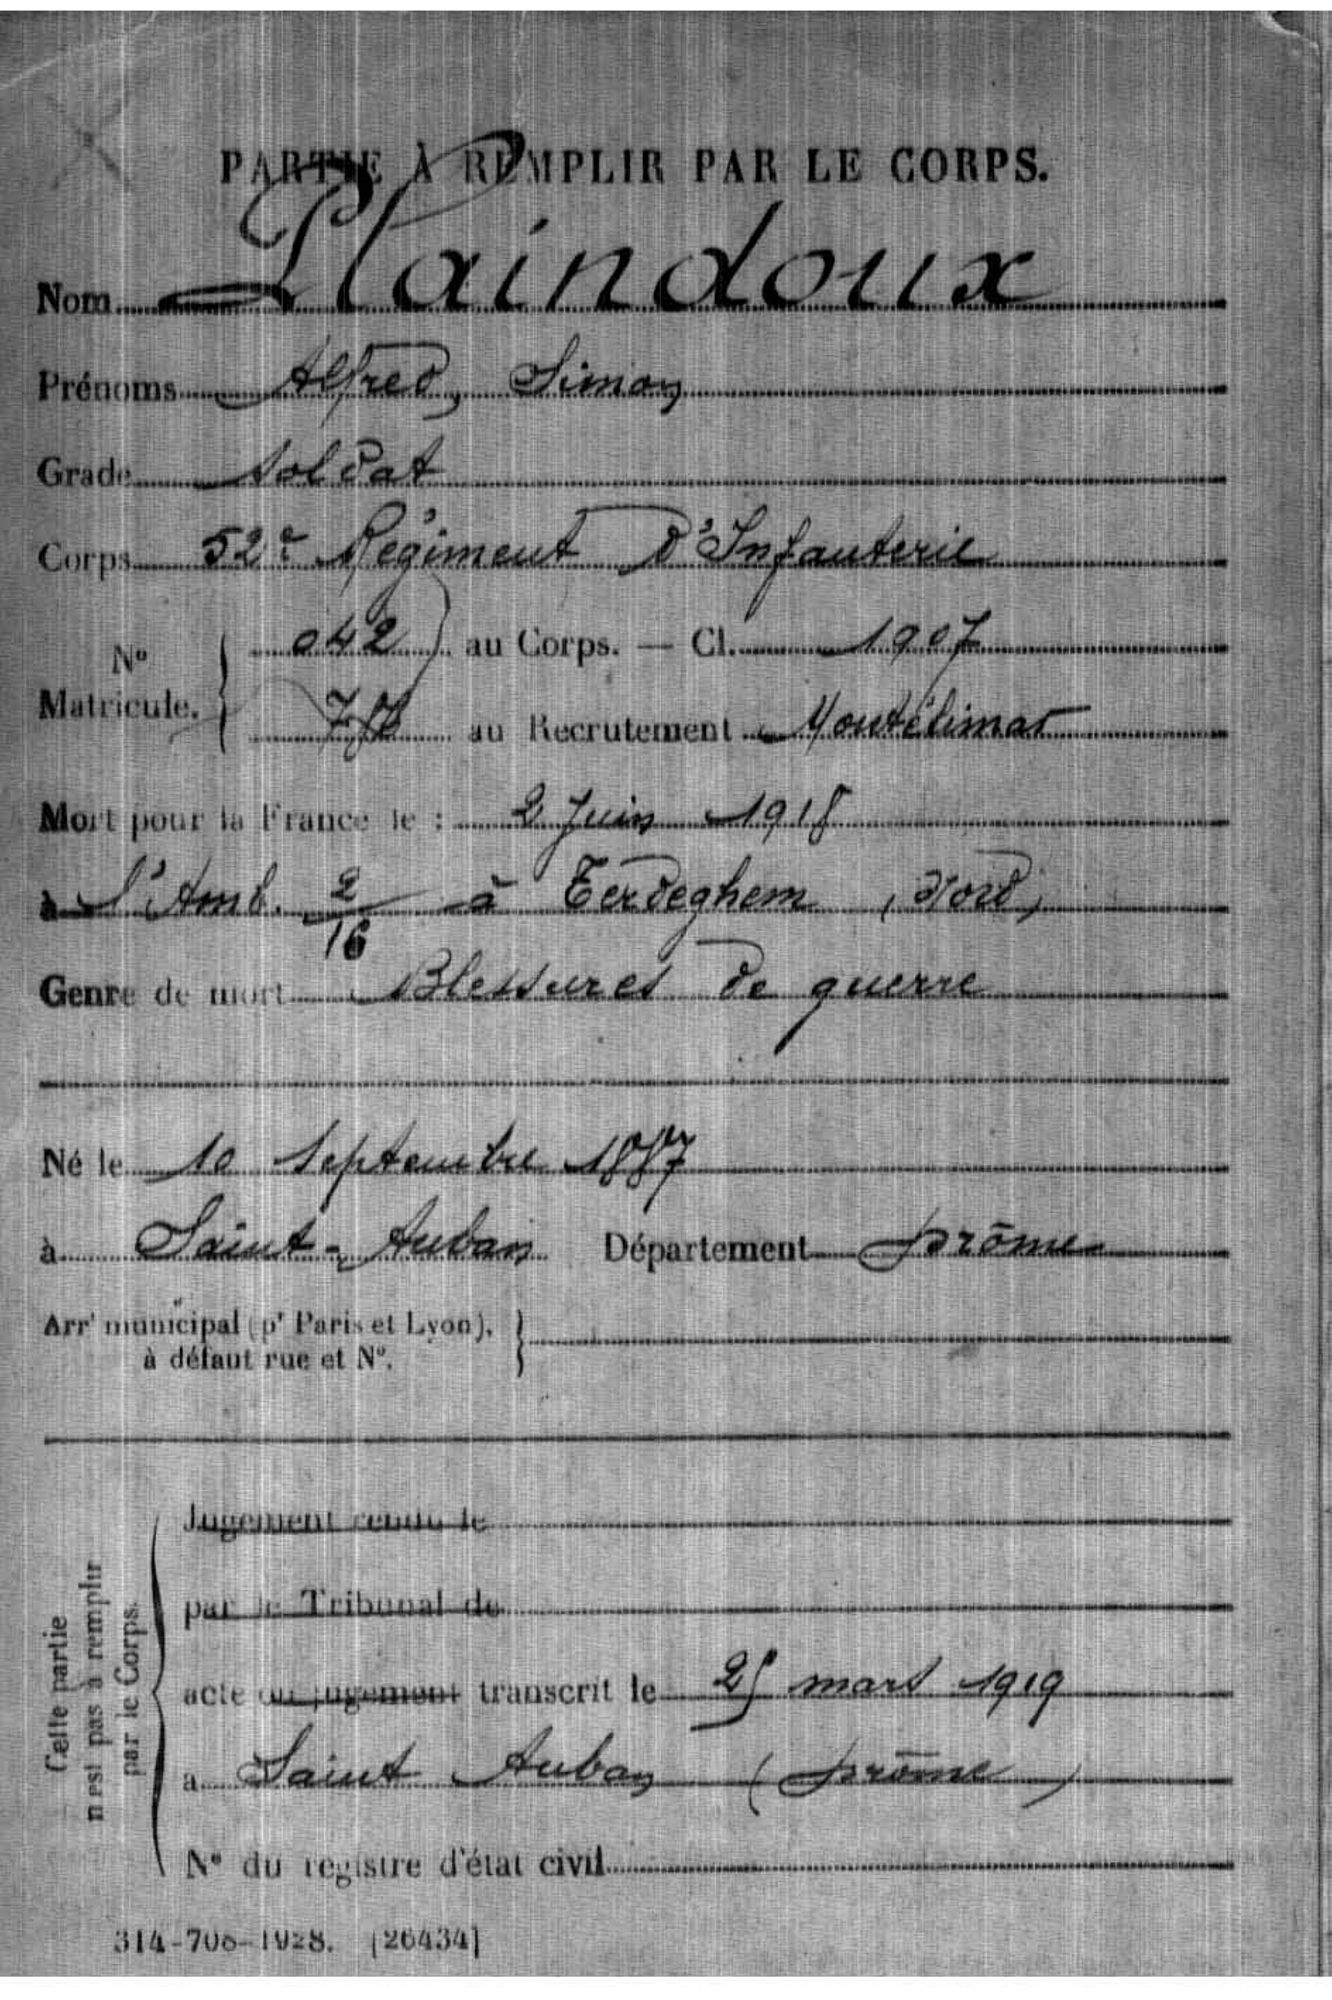 PARTIE À REMPLIR PAR LE CORPS.
Nom Plaindoux
Prénoms Alfred, Simon
Grade soldat
Corps 52e Régiment d'Infanterie
No Matricule. { 042 au Corps. — Cl. 1907
au Recrutement Montélimar
Mort pour la France le : 2 Juin 1918
à l'Amb. 2/16 à Terdeghem (Nord)
Genre de mort Blessures de guerre
Né le 10 Septembre 1887
à Saint-Auban Département Drôme
Arrt municipal (pr Paris et Lyon),
à défaut rue et No. }
Cette partie
n'est pas à remplir
par le Corps.
Jugement rendu le
par le Tribunal de
acte ou jugement transcrit le 25 mars 1919
à Saint Auban (Drôme)
No du registre d'état civil
314-708-1928. [26434]